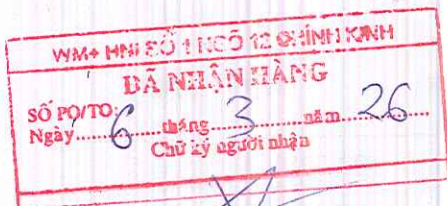 WM+ HNI SỐ 1 NGÕ 12 CHÍNH KINH
ĐÃ NHẬN HÀNG
SỐ PO/TO:
Ngày......6......tháng......3......năm......26
Chữ ký người nhận